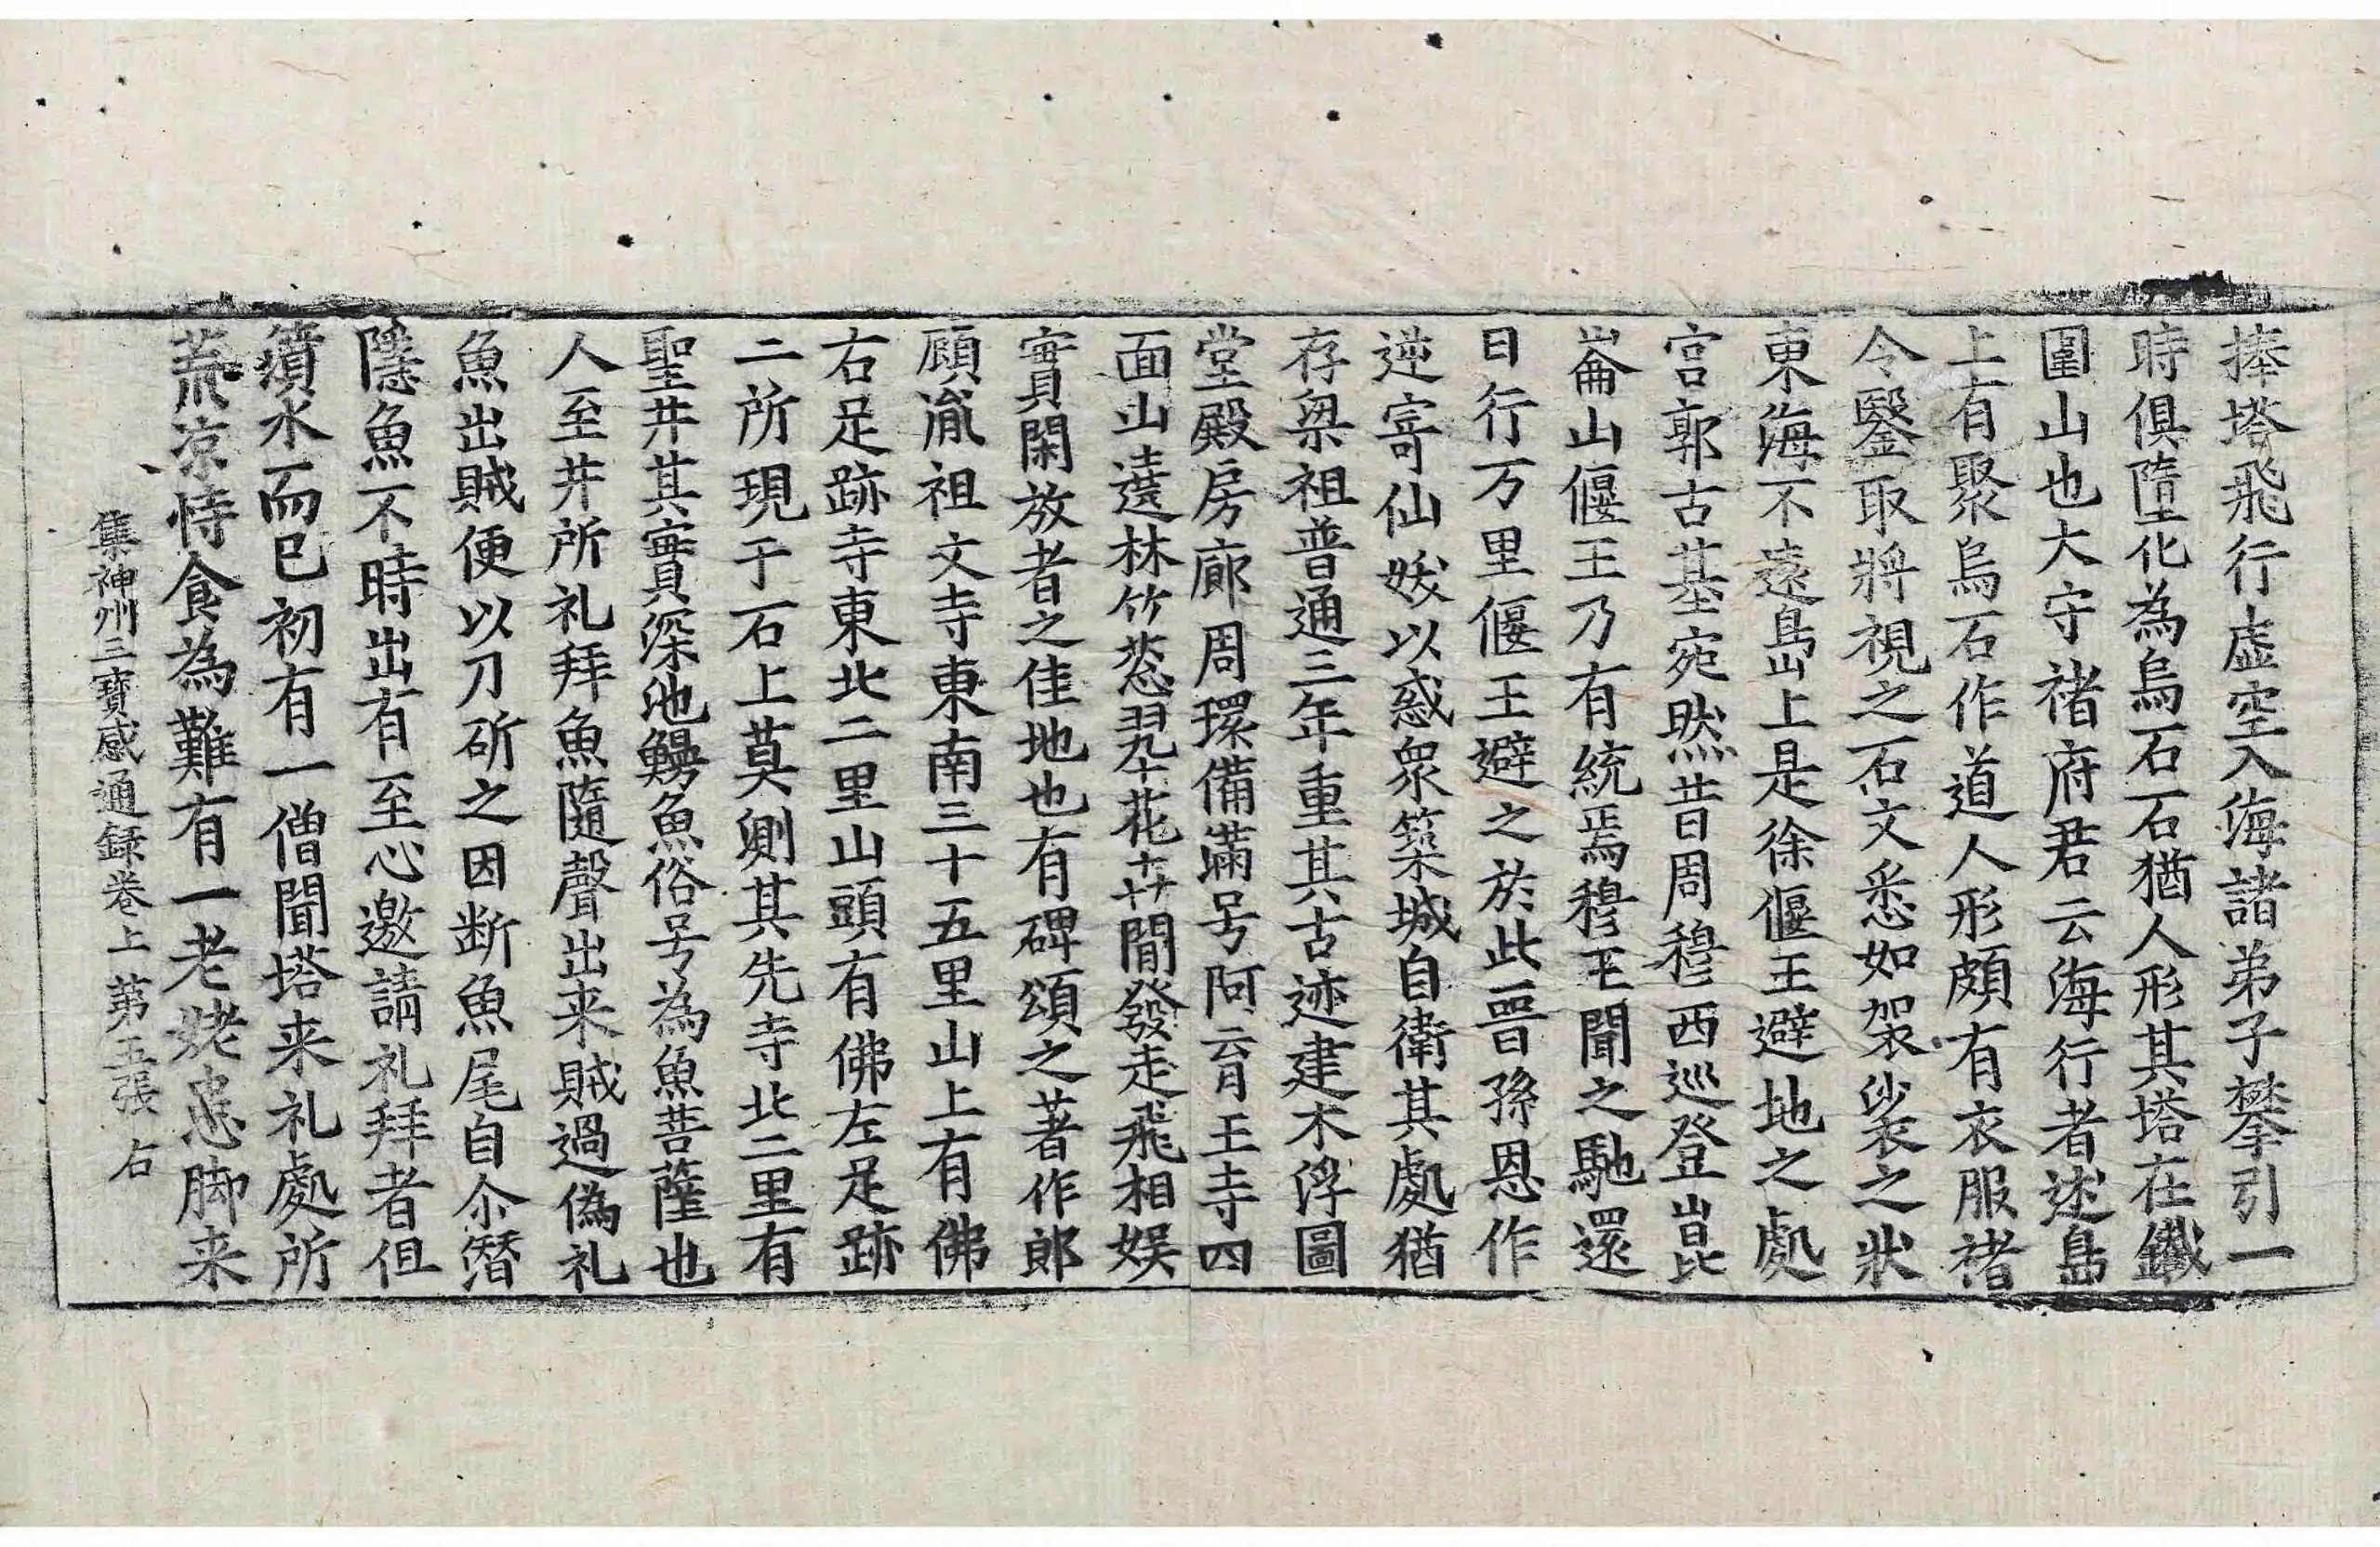 捧塔飛行虛空入海諸弟子攀引一
時俱墮化為烏石石猶人形其塔在鐵
圍山也大守禇府君云海行者述島
上有聚烏石作道人形頗有衣服禇
令鑿取將視之石文悉如袈裟之狀
東海不遠島上是徐偃王避地之處
宮郭古基宛然昔周穆西巡登崑
崙山偃王乃有統焉穆王聞之馳還
日行万里偃王避之於此晉孫恩作
逆寄仙妖以惑衆築城自衛其處猶
存梁祖普通三年重其古迹建木浮圖
堂殿房廊周環備滿号阿育王寺四
面山遶林竹葱翠花卉間發走飛相娛
實閑放者之佳地也有碑頌之著作郎
顧胤祖文寺東南三十五里山上有佛
右足跡寺東北二里山頭有佛左足跡
二所現于石上莫測其先寺北二里有
聖井其實深池鰻魚俗号為魚菩薩也
人至井所礼拜魚隨聲出来賊過偽礼
魚出賊便以刀斫之因断魚尾自尒潛
隱魚不時出有至心邀請礼拜者但
濆水而已初有一僧聞塔来礼處所
荒凉恃食為難有一老姥患脚来
集神州三寶感通録卷上 第五張 右